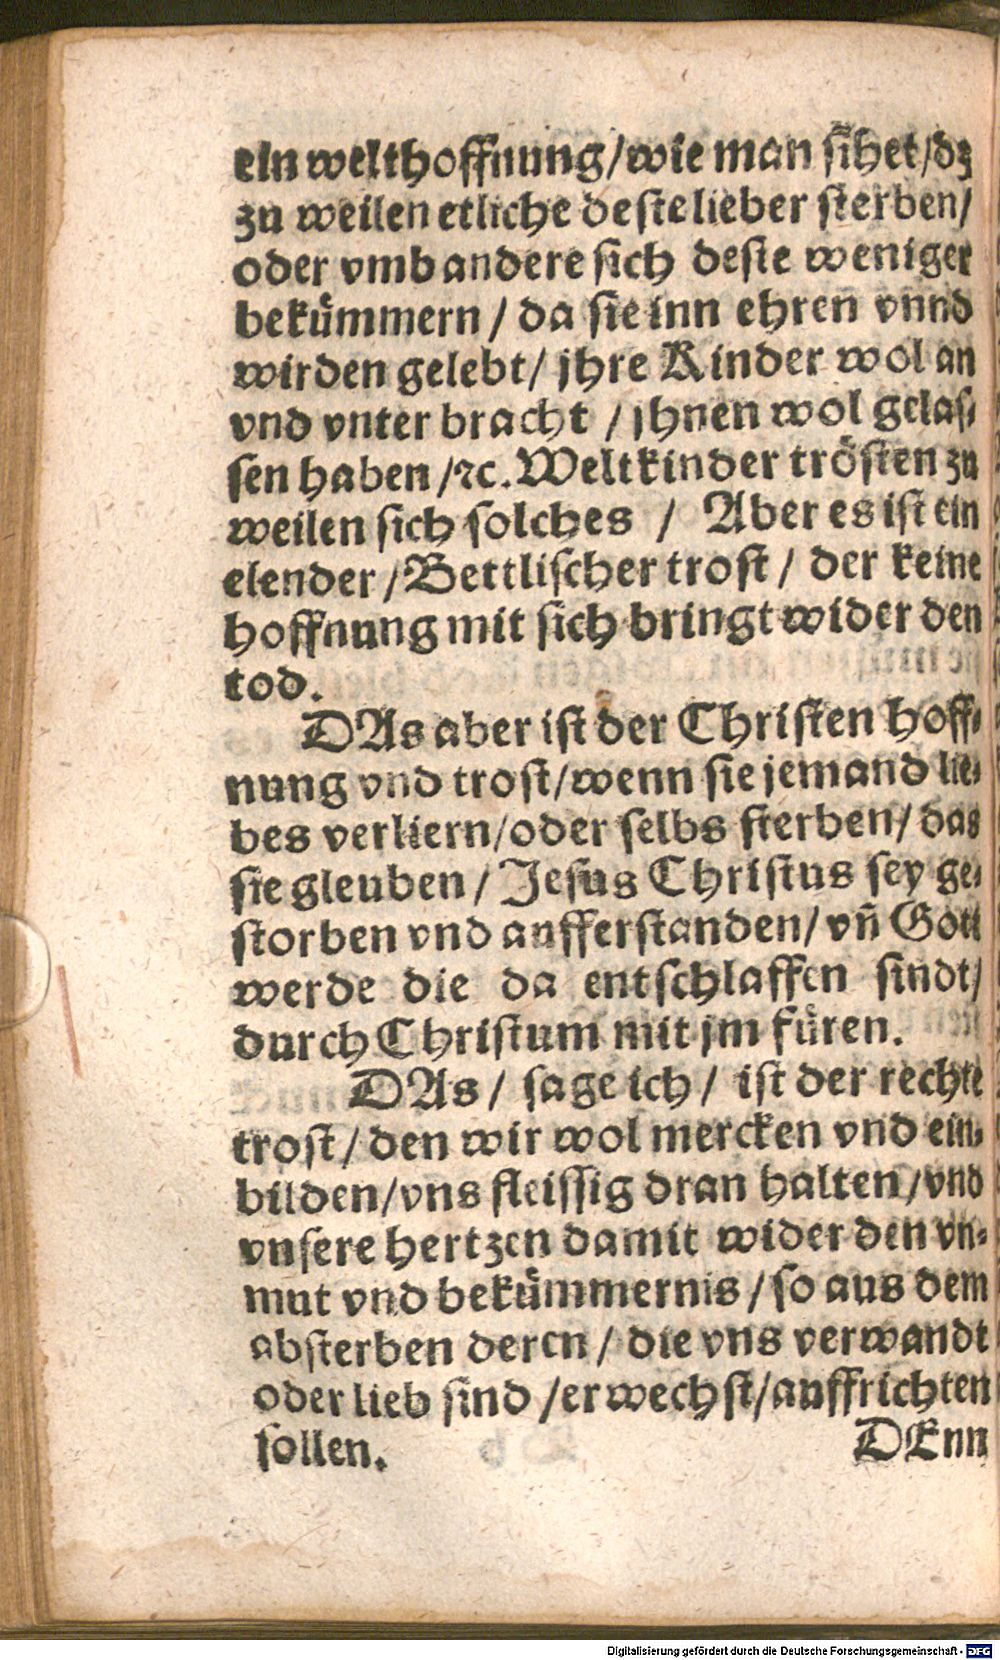 ein welthoffnung/wie man sihet/dz
zu weilen etliche deste lieber sterben/
oder vmb andere sich deste weniger
bekümmern / da sie inn ehren vnnd
wirden gelebt/ jhre Kinder wol an
vnd vnter bracht / jhnen wol gelas⸗
sen haben /ꝛc. Weltkinder trösten zu
weilen sich solches / Aber es ist ein
elender/Bettlischer trost/ der keine
hoffnung mit sich bringt wider den
tod.
DAs aber ist der Christen hoff⸗
nung vnd trost/wenn sie jemand lie⸗
bes verliern/oder selbs sterben/ das
sie gleuben/ Jesus Christus sey ge⸗
storben vnd aufferstanden/ vñ Gott
werde die da entschlaffen sindt/
durch Christum mit jm füren.
DAs/ sage ich/ ist der rechte
trost/ den wir wol mercken vnd ein⸗
bilden/vns fleissig dran halten/vnd
vnsere hertzen damit wider den vn⸗
mut vnd bekümmernis/so aus dem
absterben deren/ die vns verwandt
oder lieb sind /erwechst/auffrichten
sollen. DEnn
Digitalisierung gefördert durch die Deutsche Forschungsgemeinschaft - DFG